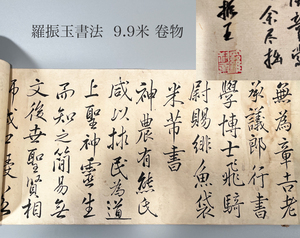 羅振玉書法 9.9米 卷物
余尽拗
振玉
無為章吉老
承議郎行書
學博士飛騎
尉賜緋魚袋
米芾書
神農有熊氏
咸以拯民為道
上聖神靈生
而知之簡易無
文後世聖賢相